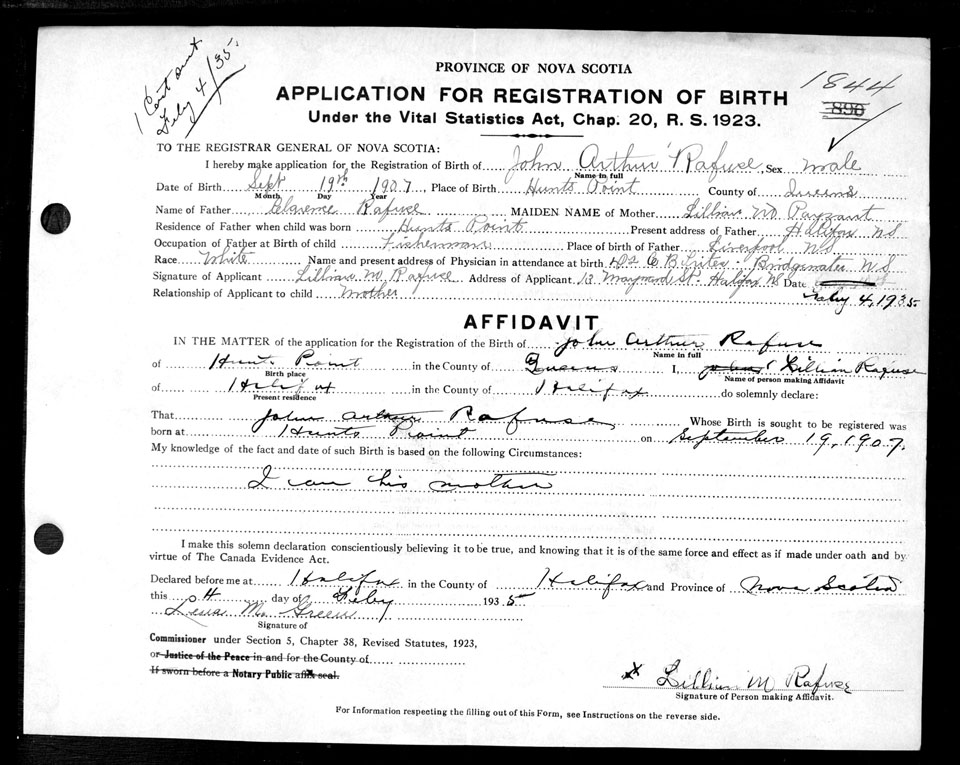 1 Cert out
Feby 4/35
1844
890
PROVINCE OF NOVA SCOTIA
APPLICATION FOR REGISTRATION OF BIRTH
Under the Vital Statistics Act, Chap. 20, R. S. 1923.
TO THE REGISTRAR GENERAL OF NOVA SCOTIA:
I hereby make application for the Registration of Birth of John Arthur Rafuse Sex male
Name in full
Date of Birth Sept 19th 1907 Place of Birth Hunts Point County of Queens
Month Day Year
Name of Father Clarence Rafuse MAIDEN NAME of Mother Lillian M. Payzant
Residence of Father when child was born Hunts Point Present address of Father Halifax NS
Occupation of Father at Birth of child Fisherman Place of birth of Father Liverpool NS
Race White Name and present address of Physician in attendance at birth Dr C B Bridgewater NS
Signature of Applicant Lillian M Rafuse Address of Applicant 13 Maynard St. Halifax NS Date
Relationship of Applicant to child Mother Feby 4, 1935
AFFIDAVIT
IN THE MATTER of the application for the Registration of the Birth of John Arthur Rafuse
Name in full
of Hunts Point in the County of Queens I, John Lillian Rafuse
Birth place Name of person making Affidavit
of Halifax in the County of Halifax do solemnly declare:
Present residence
That John Arthur Rafuse Whose Birth is sought to be registered was
born at Hunts Point on September 19, 1907.
My knowledge of the fact and date of such Birth is based on the following Circumstances:
I am his mother
I make this solemn declaration conscientiously believing it to be true, and knowing that it is of the same force and effect as if made under oath and by
virtue of The Canada Evidence Act.
Declared before me at Halifax in the County of Halifax and Province of Nova Scotia
this 4 day of Feby 1935
Lena M. Green
Signature of
Commissioner under Section 5, Chapter 38, Revised Statutes, 1923,
or Justice of the Peace in and for the County of
If sworn before a Notary Public affix seal.
X Lillian M Rafuse
Signature of Person making Affidavit.
For Information respecting the filling out of this Form, see Instructions on the reverse side.